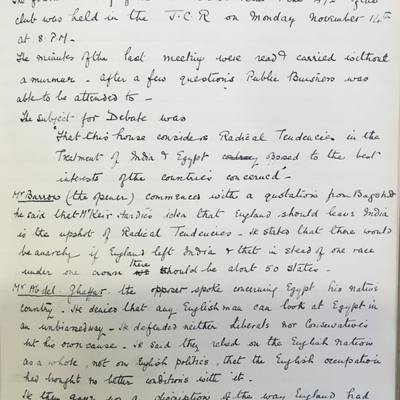 club was held in the J.C.R on Monday November 14th
at 8. P.M.
The minutes of the last meeting were read & carried without
a murmur. After a few questions Public Business was
able to be attended to -
The subject for Debate was
"That this house considers Radical Tendencies in the
Treatment of India & Egypt opposed to the best
interests of the countries concerned" -
Mr Barrow (the opener) commenced with a quotation from Bagehot
he said that Mr Keir Hardie's idea that England should leave India
is the upshot of Radical Tendencies. He states that there would
be anarchy if England left India & that in stead of one race
under one crown there should be about 50 states. -
Mr Abdel-Ghaffar the opposer spoke concerning Egypt his native
country. He denied that any English man can look at Egypt in
an unbiassed way - He defended neither liberals nor Conservatives
but his own cause. He said they relied on the English Nation
as a whole, not on English politics, that the English occupation
had brought no better conditions with it.
He then gave us a description of the way England had